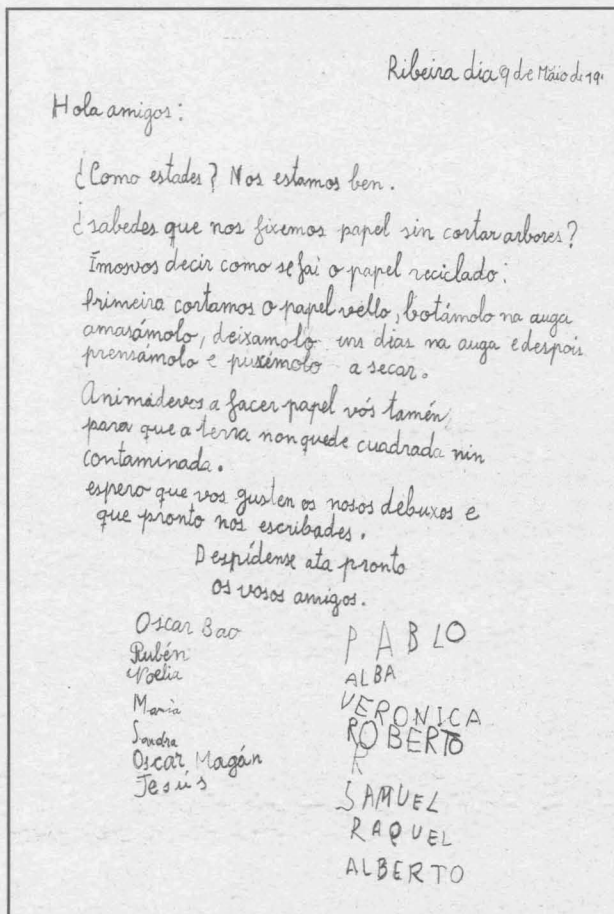 Ribeira dia 9 de Maio de 19
Hola amigos:
¿Como estades? Nos estamos ben.
¿sabedes que nos fixemos papel sin cortar arbores?
Imosvos decir como se fai o papel reciclado:
Primeira cortamos o papel vello, botámolo na auga
amasámolo, deixamolo uns dias na auga e despois
prensámolo e puxémolo a secar.
Animádevos a facer papel vós tamén,
para que a terra non quede cuadrada nin
contaminada.
espero que vos gusten os nosos debuxos e
que pronto nos escribades.
Despídense ata pronto
os vosos amigos.
Oscar Bao
Rubén
Noelia
Maria
Sandra
Oscar Magán
Jesús
PABLO
ALBA
VERONICA
ROBERTO
R
SAMUEL
RAQUEL
ALBERTO